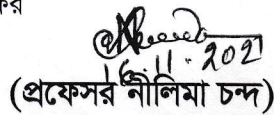 কর
6.11.2021
(প্রফেসর নীলিমা চন্দ)